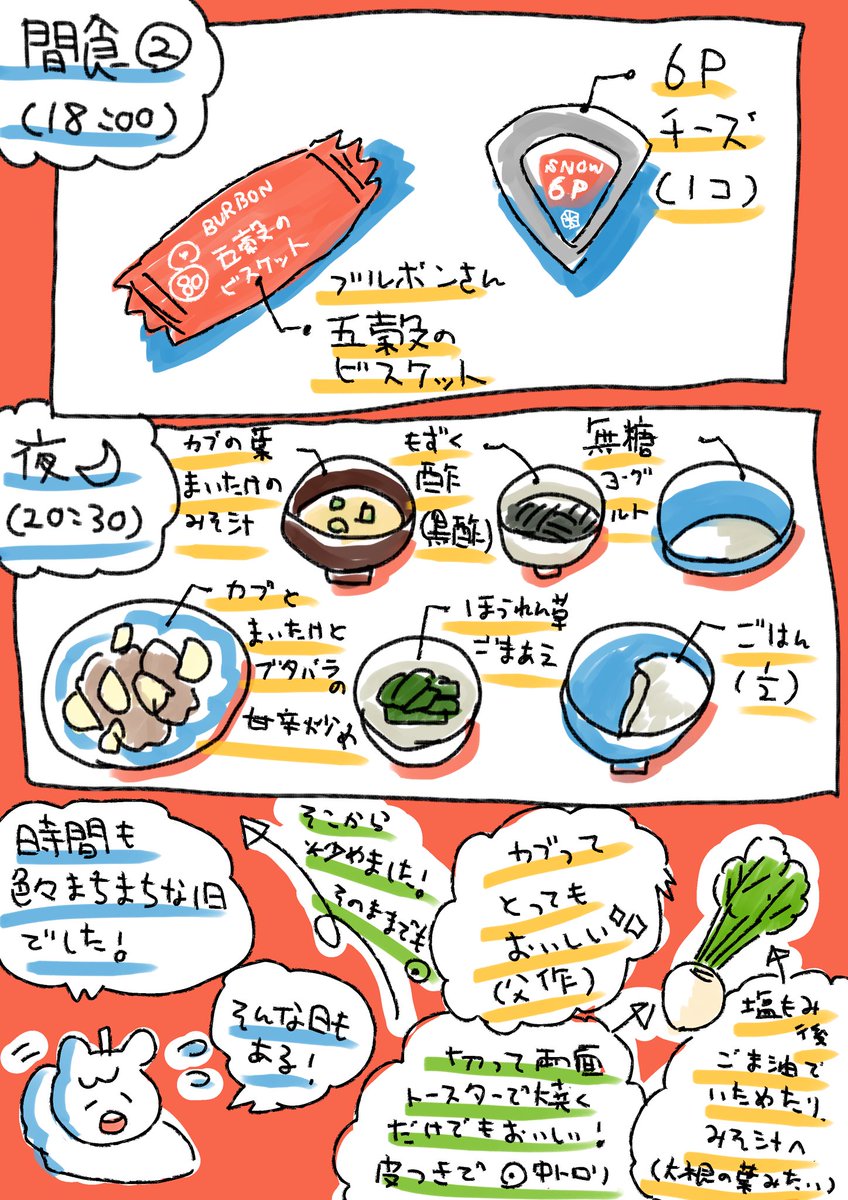 間食②
(18:00)
6P
チーズ
(1コ)
SNOW
6P
BURBON
80
五穀の
ビスケット
ブルボンさん
五穀の
ビスケット
夜
(20:30)
カブの葉
まいたけの
みそ汁
もずく
酢
(黒酢)
無糖
ヨーグ
ルト
カブと
まいたけと
ブタバラの
甘辛炒め
ほうれん草
ごまあえ
ごはん
(1/2)
時間も
色々まちまちな1日
でした!
そんな日も
ある!
そこから
炒めました!
そのままでも
◎
カブって
とっても
おいしい
(父作)
切って両面
トースターで焼く
だけでもおいしい!
皮つきで◎中トロリ
塩もみ
後
ごま油で
いためたり
みそ汁へ
(大根の葉みたい)